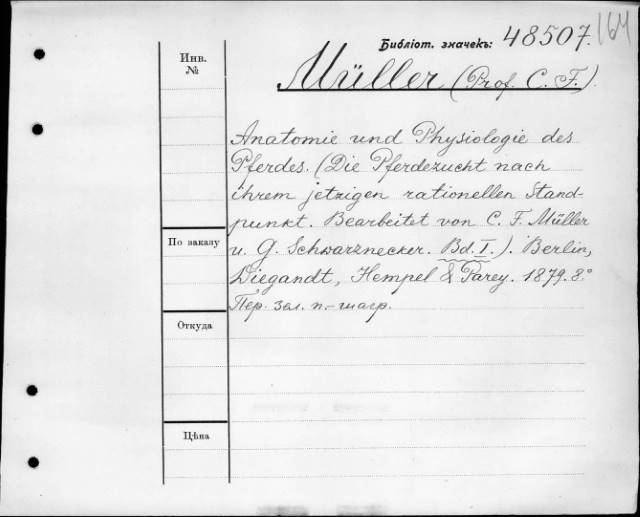 Библіот. значекъ: 48507. 164
Инв. №
Müller (Prof. C. F.).
Anatomie und Physiologie des
Pferdes. (Die Pferdezucht nach
ihrem jetzigen rationellen Stand-
punkt. Bearbeitet von C. F. Müller
u. G. Schwarznecker. Bd. I.). Berlin,
Wiegandt, Hempel & Parey. 1879. 8.°
Пер. зел. п.-шагр.
По заказу
Откуда
Цѣна